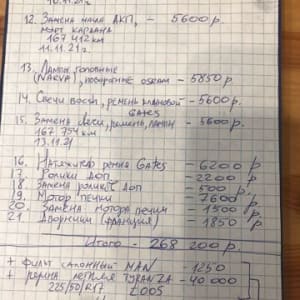 10.11.21г.
12. Замена масла АКП, - 5600р.
мост кардана
167 412 км
11.11.21г.
13. Лампы, головные
(NARVA), поворотные osram - 5850 р
14. Свечи Bosch, ремень клиновой - 5600р.
GATES
15. Замена свечи, ремень, лампы - 5600р.
167 754 км
13.11.21
16. Натяжитель ремня Gates - 6200 р
17. Ролики ДОП - 2200 р
18. Замена ролик ДОП - 500 р,
19. Мотор печки - 7600
20. Замена мотора печки - 1500 р
21. Дворники (Франция) - 1850 р.
Итого - 268 200р.
+ фильтр салонный MAN - 1250
+ резина летняя TURANZA - 40 000
225/50/R17 2005